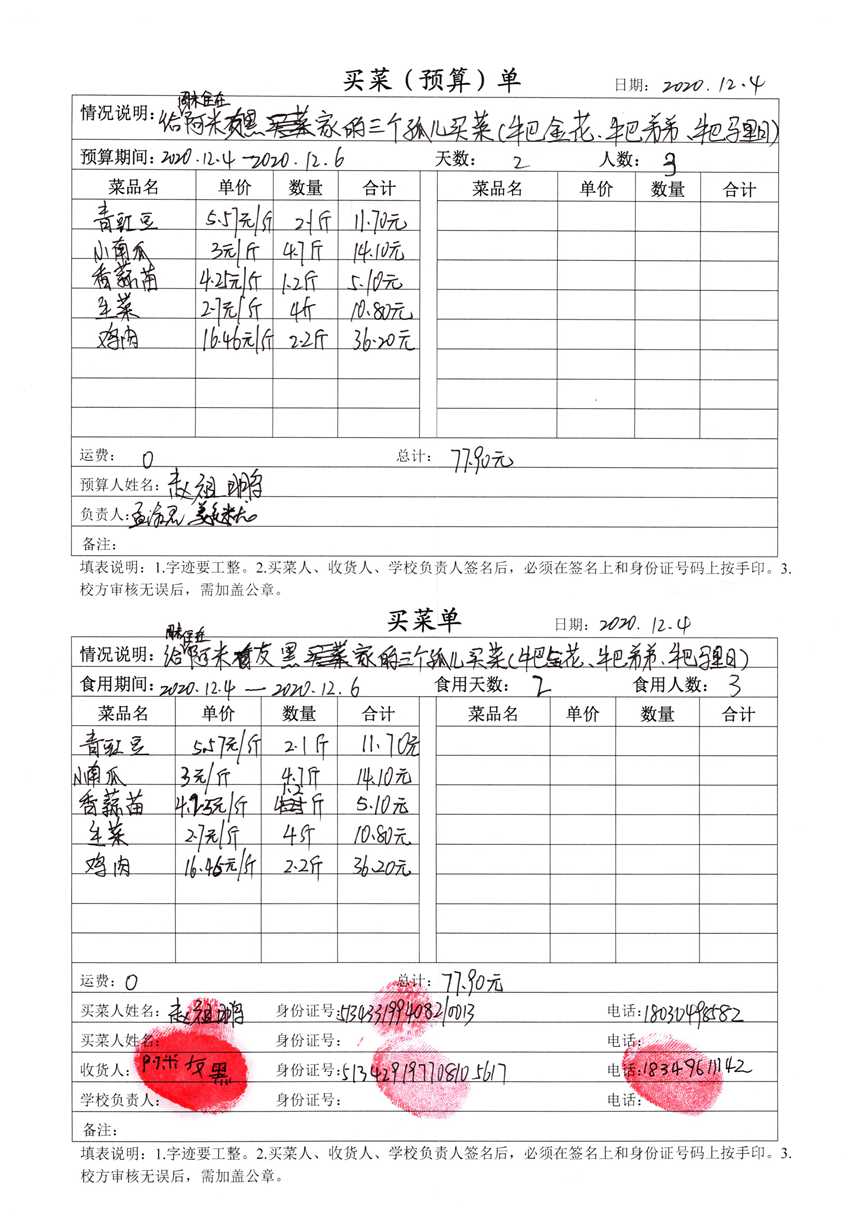 买菜（预算）单
日期: 2020.12.4
周末住在
情况说明: 给阿米友黑家的三个孤儿买菜(牛巴金花、牛巴弟弟、牛巴马里日)
预算期间: 2020.12.4—2020.12.6 天数: 2 人数: 3
菜品名 单价 数量 合计 菜品名 单价 数量 合计
青豇豆 5.57元/斤 2.1斤 11.70元
小南瓜 3元/斤 4.7斤 14.10元
香蒜苗 4.25元/斤 1.2斤 5.10元
生菜 2.7元/斤 4斤 10.80元
鸡肉 16.46元/斤 2.2斤 36.20元
运费: 0 总计: 77.90元
预算人姓名: 赵祖明将
负责人:
备注:
填表说明：1.字迹要工整。2.买菜人、收货人、学校负责人签名后，必须在签名上和身份证号码上按手印。3.
校方审核无误后，需加盖公章。
买菜单
日期: 2020.12.4
周末住在
情况说明: 给阿米友黑家的三个孤儿买菜(牛巴金花、牛巴弟弟、牛巴马里日)
食用期间: 2020.12.4—2020.12.6 食用天数: 2 食用人数: 3
菜品名 单价 数量 合计 菜品名 单价 数量 合计
青豇豆 5.57元/斤 2.1斤 11.70元
小南瓜 3元/斤 4.7斤 14.10元
香蒜苗 4.25元/斤 1.2斤 5.10元
生菜 2.7元/斤 4斤 10.80元
鸡肉 16.46元/斤 2.2斤 36.20元
运费: 0 总计: 77.90元
买菜人姓名: 赵祖明将 身份证号: 513433199408210013 电话: 18030498582
买菜人姓名: 身份证号: 电话:
收货人: 阿米友黑 身份证号: 513429197708105617 电话: 18349611142
学校负责人: 身份证号: 电话:
备注:
填表说明：1.字迹要工整。2.买菜人、收货人、学校负责人签名后，必须在签名上和身份证号码上按手印。3.
校方审核无误后，需加盖公章。